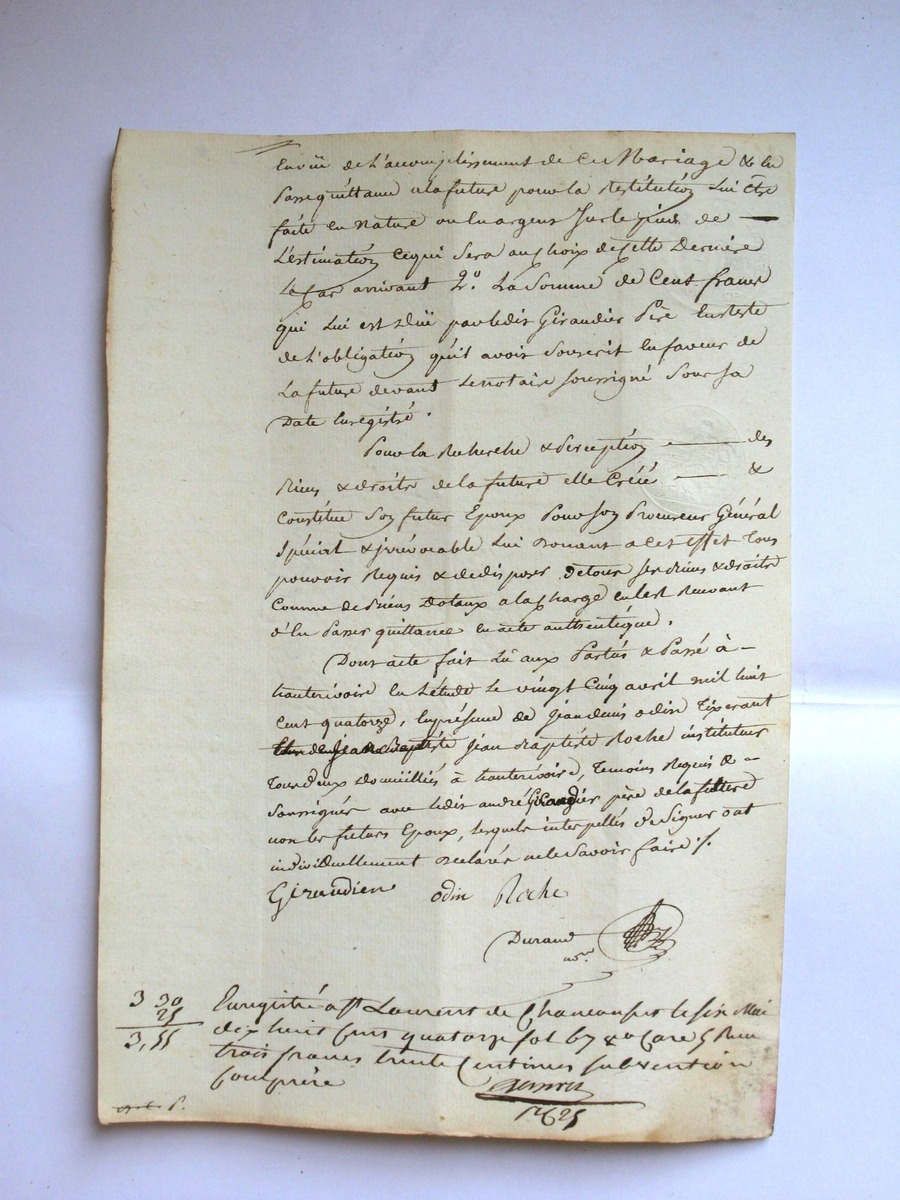 En vüe de L'accomplissement de Ce Mariage & En
Passe quittance a la future pour la Restitution Lui être
faite En Nature ou En argent Sur le pied de —
L'estimation Ce qui Sera au Choix de Cette Derniere
Le Cas arrivant 2.º La Somme de Cent francs
qui Lui est Düe par Ledit Giraudier Père En reste
de L'obligation qu'il avoit Souscrit En faveur de
La future devant Le notaire Soussigné Sous Sa
Date Enregistré.
Pour la Recherche & Perception — des
Biens & droits de la future elle Créée — &
Constitue Son futur Epoux Pour Son Procureur Général
Spécial & irrévocable Lui Donnant a Cet effet Tous
pouvoir Requis & de disposer de tous Ses Biens & droits
Comme de Biens Dotaux a la Charge En les Recevant
d'En Passer quittance En acte authentique.
Dont acte fait Lû aux Parties & Passé à —
hauterivoire En L'étude Le vingt Cinq avril mil huit
Cent quatorze, En présence de Jean denis odin Tixerant
Jean Baptiste Roche instituteur
Tous deux Domiciliés à hauterivoire, Temoins Requis & —
Soussignés avec Ledit andré Giraudier père de la future
non les futurs Epoux, Lesquels interpellés de Signer ont
individuellement Déclarés ne le Savoir faire ./.
Giraudier odin Roche
Durand
nore
3 30
25
3,55
Enregistré a St Laurent de Chamousset le six Mai
dix huit Cent quatorze fol 67 Vo Case 5 Reçu
trois francs trente Centimes subvention
Comprise